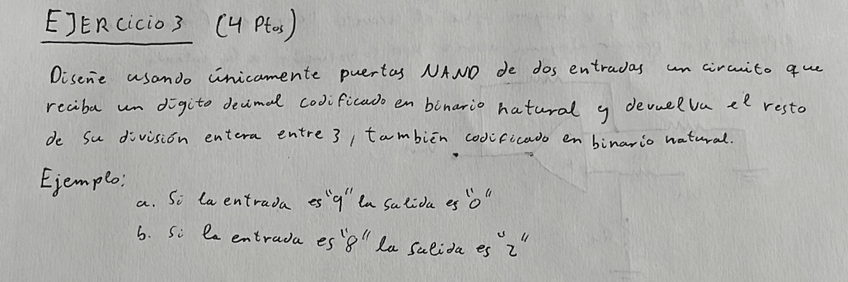 EJERcicio 3 (4 Ptos)
Diseñe usando únicamente puertas NAND de dos entradas un circuito que
reciba un dígito decimal codificado en binario natural y devuelva el resto
de su división entera entre 3, también codificado en binario natural.
Ejemplo:
a. Si la entrada es "9" la salida es "0"
b. Si la entrada es "8" la salida es "2"